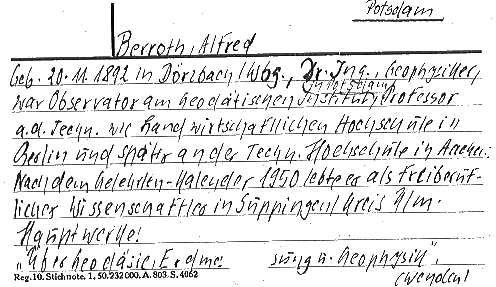 Potsdam
Berroth, Alfred
Geb. 20.11.1892 in Dörzbach/Wbg., Dr. Ing., Geophysiker,
in Potsdam
war Observator am Geodätischen Institut, Professor
a.d. Techn. wie handwirtschaftlichen Hochschule in
Berlin und später an der Techn. Hochschule in Aachen.
Nach dem Gelehrten-Kalender 1950 lebte er als freiberuf-
licher Wissenschaftler in Suppingen/Kreis Ulm.
Hauptwerke:
"Über Geodäsie, Erdmessung u. Geophysik",
(wenden)
Reg. 10. Stichnote. 1. 50. 232000. A. 803. S. 4062